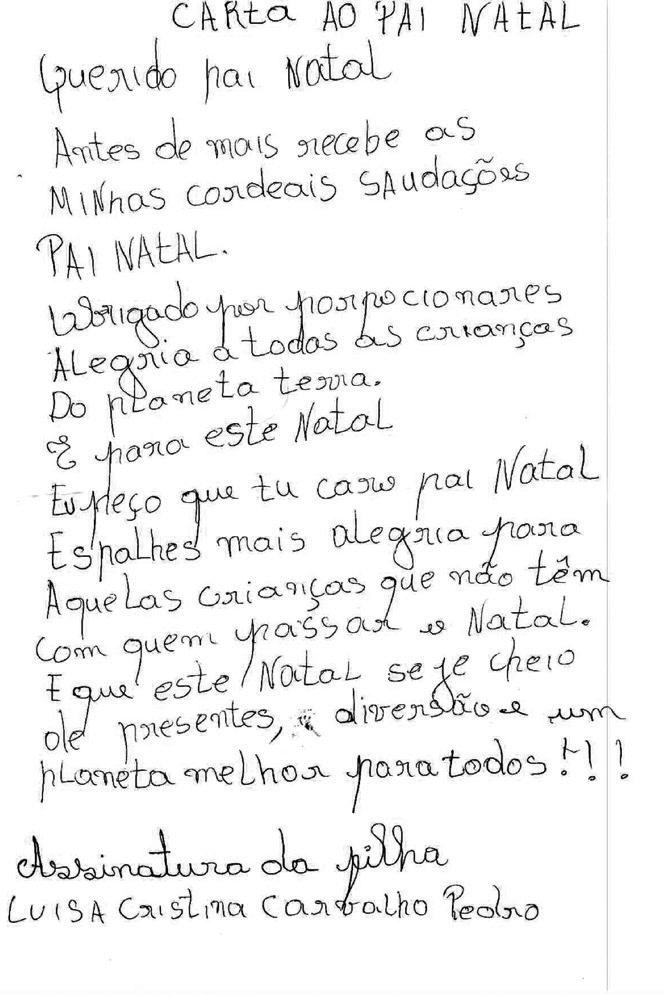 CARta AO PAI NAtAL
Querido pai Natal
Antes de mais recebe as
MINhas cordeais SAudações
PAI NAtAL.
Obrigado por porpocionares
ALegria a todas as crianças
Do planeta terra.
E para este Natal
Eu peço que tu caro pai Natal
Espalhes mais alegria para
AqueLas crianças que não têm
com quem passar o Natal.
E que este Natal seje cheio
de presentes, diversão e um
pLaneta melhor para todos!!!
Assinatura da filha
LUISA Cristina Carvalho Pedro